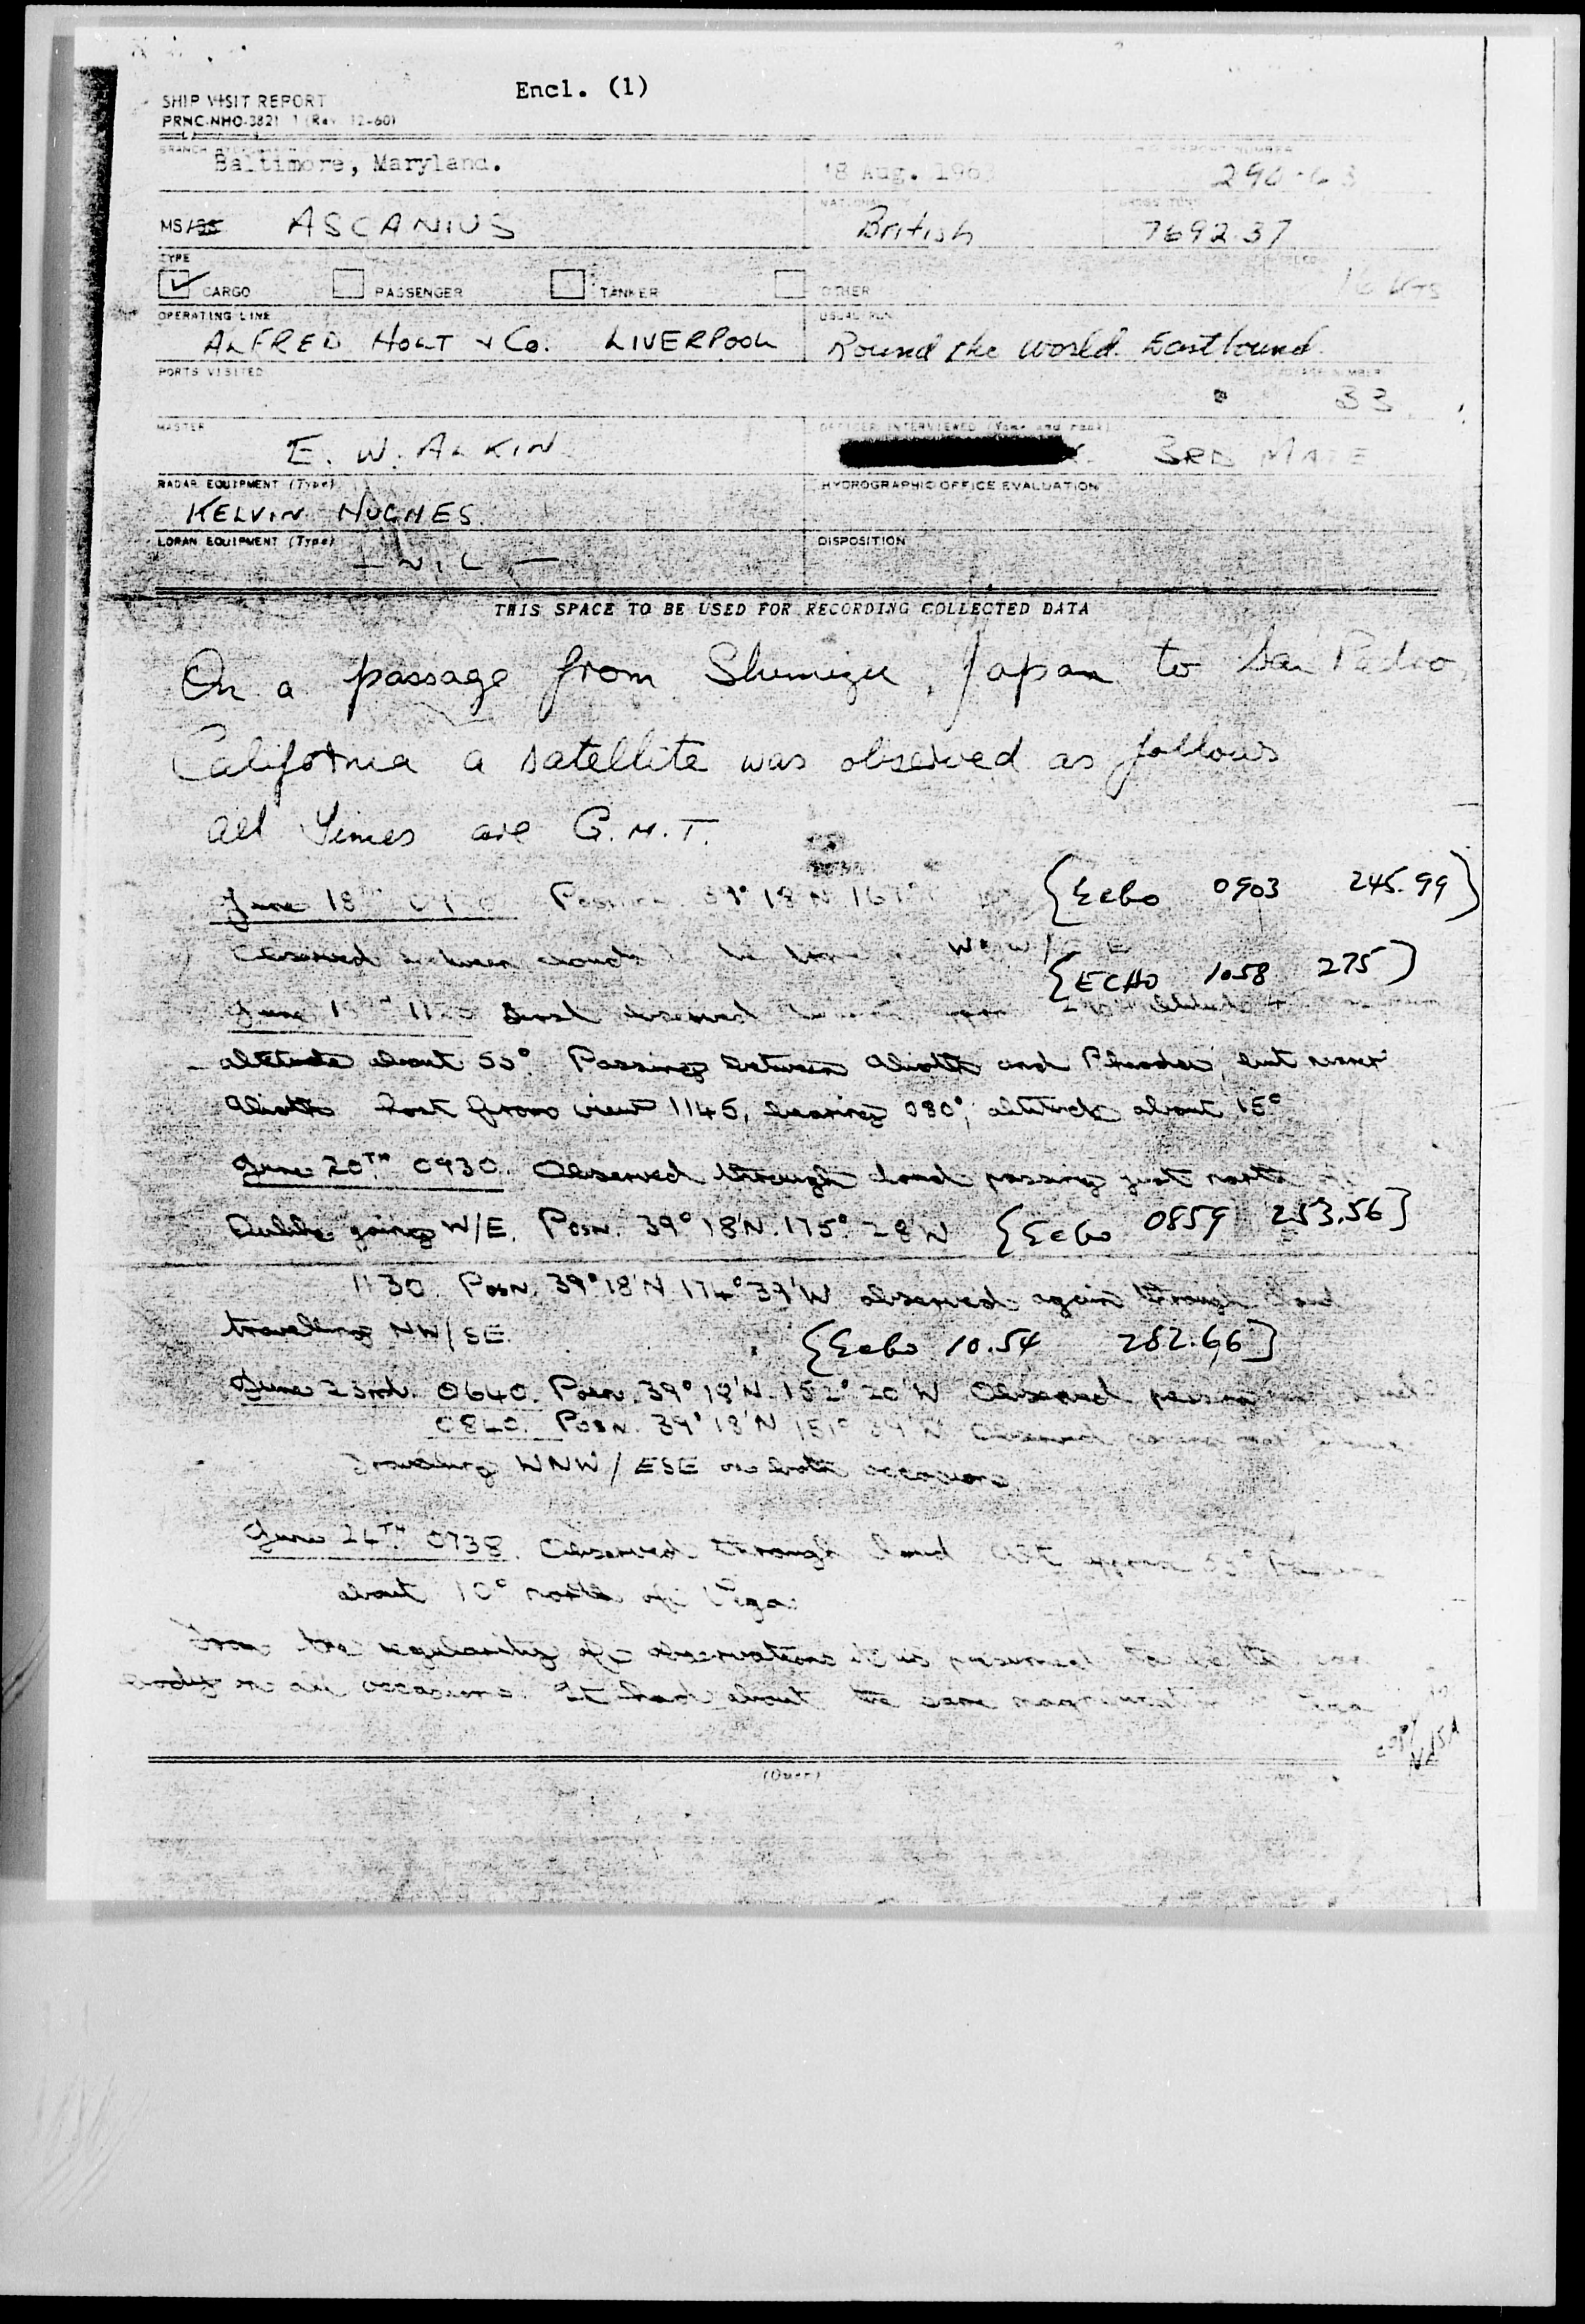 Encl. (1)
SHIP VISIT REPORT
PRNC-NHO-3821 1 (Rev. 12-60)
Baltimore, Maryland.
18 Aug. 1963
290-63
MS/SS ASCANIUS
NATIONALITY
British
GROSS TONS
7692.37
TYPE
CARGO
PASSENGER
TANKER
OTHER
16 kts
OPERATING LINE
ALFRED HOLT & Co. LIVERPOOL
USUAL RUN
Round the World. Eastbound.
PORTS VISITED
VOYAGE NUMBER
33
MASTER
E. W. ALKIN
OFFICER INTERVIEWED (Name and rank)
3RD MATE
RADAR EQUIPMENT (Type)
KELVIN HUGHES
HYDROGRAPHIC OFFICE EVALUATION
LORAN EQUIPMENT (Type)
— NIL —
DISPOSITION
THIS SPACE TO BE USED FOR RECORDING COLLECTED DATA
On a passage from Shimizu, Japan to San Pedro,
California a satellite was observed as follows
All Times are G.M.T.
June 18th 39° 18'N {Echo 0903 245.99}
Observed between clouds
{ECHO 1058 275}
June first observed
altitude about 55°. Passing between Alioth and Phecda, but nearer
Alioth. Lost from view 1145, bearing 080°, altitude about 15°
June 20TH 0930. Observed through cloud passing just north of
going W/E. Posn. 39° 18'N. 175° 28'W {Echo 0859 253.56]
1130. Posn. 39° 18'N 174° 39'W observed again through cloud
travelling NW/SE.
{Echo 10.54 282.66]
June 23rd. 0640. Posn. 39° 18'N. 152° 20'W Observed passing
0840. Posn. 39° 18'N 151° 39'W Observed passing
Travelling WNW/ESE on both occasions.
June 24TH. 0738. Observed through cloud Alt approx 55° Passing
about 10° north of Vega.
From the regularity of observations it is presumed to be the same
body on all occasions. It had about the same magnitude
copy to
NASA
(Over)